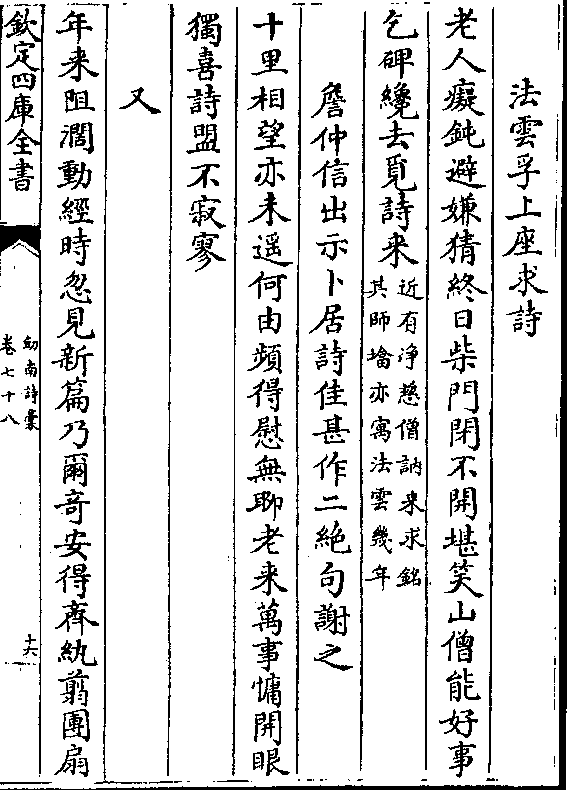 法雲孚上座求詩
老人癡鈍避嫌猜終日柴門閉不開堪笑山僧能好事
乞碑纔去覓詩来
近有浄慈僧訥来求銘
其師塔亦寓法雲幾年
詹仲信出示卜居詩佳甚作二絶句謝之
十里相望亦未遥何由頻得慰無聊老来萬事慵開眼
獨喜詩盟不寂寥
又
年来阻濶動經時忽見新篇乃爾奇安得齊紈翦團扇
欽定四庫全書
劒南詩稾
卷七十八
十六